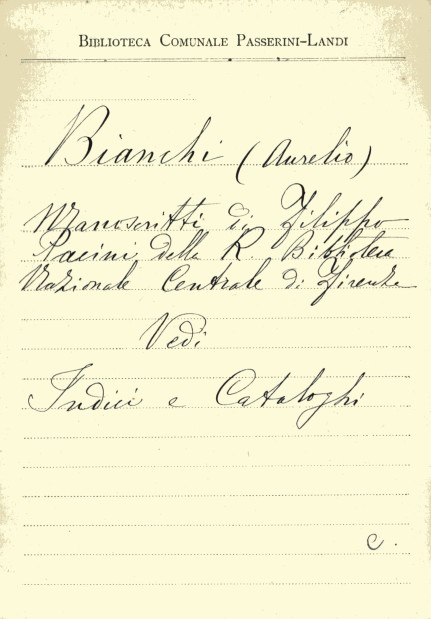 BIBLIOTECA COMUNALE PASSERINI-LANDI
Bianchi (Aurelio)
Manoscritti di Filippo
Pacini della R. Biblioteca
Nazionale Centrale di Firenze
Vedi
Indici e Cataloghi
C.